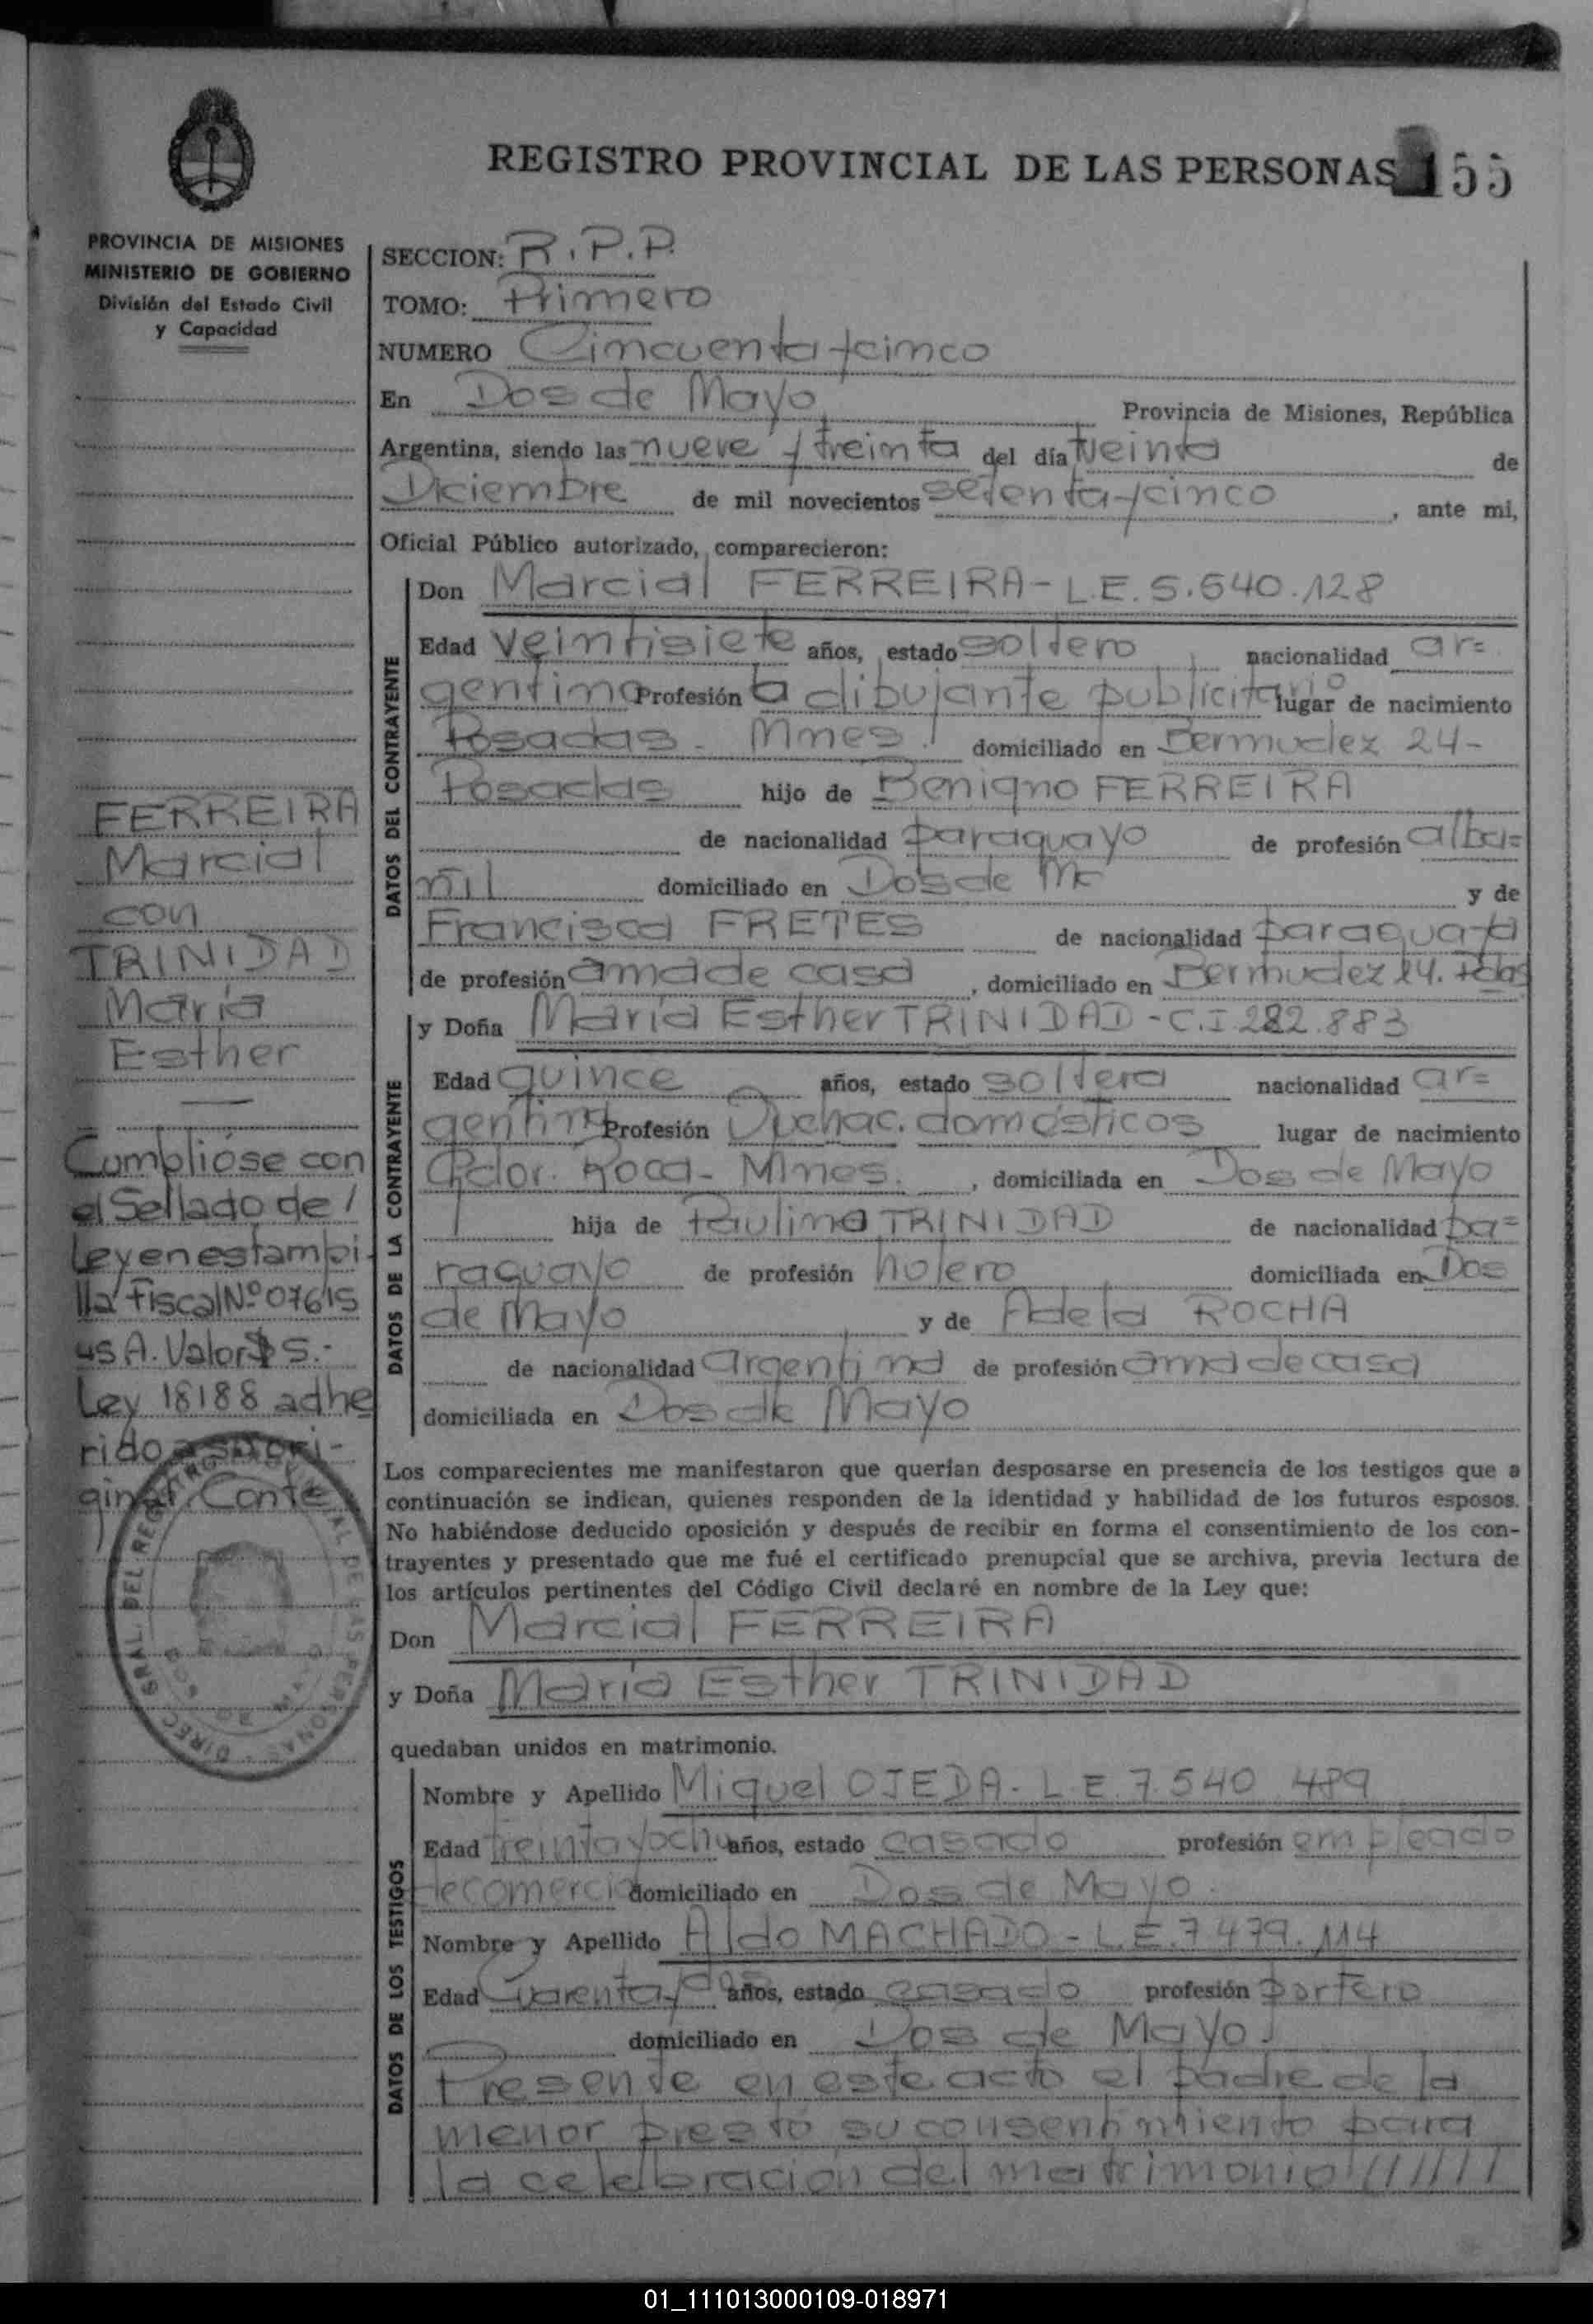 REGISTRO PROVINCIAL DE LAS PERSONAS 155
PROVINCIA DE MISIONES
MINISTERIO DE GOBIERNO
División del Estado Civil
y Capacidad
FERREIRA
Marcial
con
TRINIDAD
María
Esther
Cumplióse con
el Sellado de /
Ley en estampi-
lla Fiscal Nº 07615
45 A. Valor $ 5.-
Ley 18188 adhe
rido a su ori-
ginal. Conte
DIREC. GRAL. DEL REGISTRO PROVINCIAL DE LAS PERSONAS
SECCION: R.P.P.
TOMO: Primero
NUMERO Cincuenta y cinco
En Dos de Mayo Provincia de Misiones, República
Argentina, siendo las nueve y treinta del día treinta de
Diciembre de mil novecientos setenta y cinco, ante mi,
Oficial Público autorizado, comparecieron:
DATOS DEL CONTRAYENTE
Don Marcial FERREIRA - L.E. 5.640.128
Edad veintisiete años, estado soltero nacionalidad ar=
gentina Profesión dibujante publicitario lugar de nacimiento
Posadas - Mnes. domiciliado en Bermudez 24-
Posadas hijo de Benigno FERREIRA
de nacionalidad paraguayo de profesión alba=
ñil domiciliado en Dos de y de
Francisca FRETES de nacionalidad paraguaya
de profesión ama de casa, domiciliado en Bermudez 24. Pdas
DATOS DE LA CONTRAYENTE
y Doña María Esther TRINIDAD - C.I. 282.883
Edad quince años, estado soltera nacionalidad ar=
gentina Profesión Quehac. domésticos lugar de nacimiento
Gdor. Roca - Mnes., domiciliada en Dos de Mayo
hija de Paulino TRINIDAD de nacionalidad pa=
raguayo de profesión domiciliada en Dos
de Mayo y de Adela ROCHA
de nacionalidad argentina de profesión ama de casa
domiciliada en Dos de Mayo
Los comparecientes me manifestaron que querían desposarse en presencia de los testigos que a
continuación se indican, quienes responden de la identidad y habilidad de los futuros esposos.
No habiéndose deducido oposición y después de recibir en forma el consentimiento de los con-
trayentes y presentado que me fué el certificado prenupcial que se archiva, previa lectura de
los artículos pertinentes del Código Civil declaré en nombre de la Ley que:
Don Marcial FERREIRA
y Doña María Esther TRINIDAD
quedaban unidos en matrimonio.
DATOS DE LOS TESTIGOS
Nombre y Apellido Miguel OJEDA - L.E. 7.540.489
Edad treinta y ocho años, estado casado profesión empleado
de comercio domiciliado en Dos de Mayo.
Nombre y Apellido Aldo MACHADO - L.E. 7.479.114
Edad Cuarenta y dos años, estado casado profesión portero
domiciliado en Dos de Mayo.
Presente en este acto el padre de la
menor prestó su consentimiento para
la celebración del matrimonio //////
01_111013000109-018971